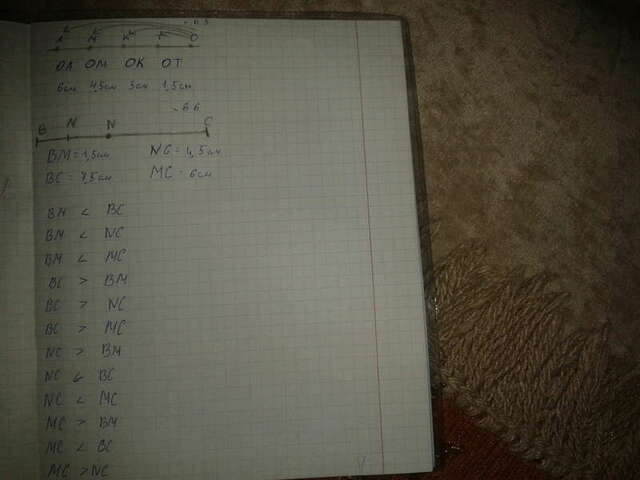 - 65
A M K T O
OA OM OK OT
6см 4,5см 3см 1,5см
- 66
B N N C
BM = 1,5см NC = 4,5см
BC = 7,5см MC = 6см
BM < BC
BM < NC
BM < MC
BC > BM
BC > NC
BC > MC
NC > BM
NC < BC
NC < MC
MC > BM
MC < BC
MC > NC